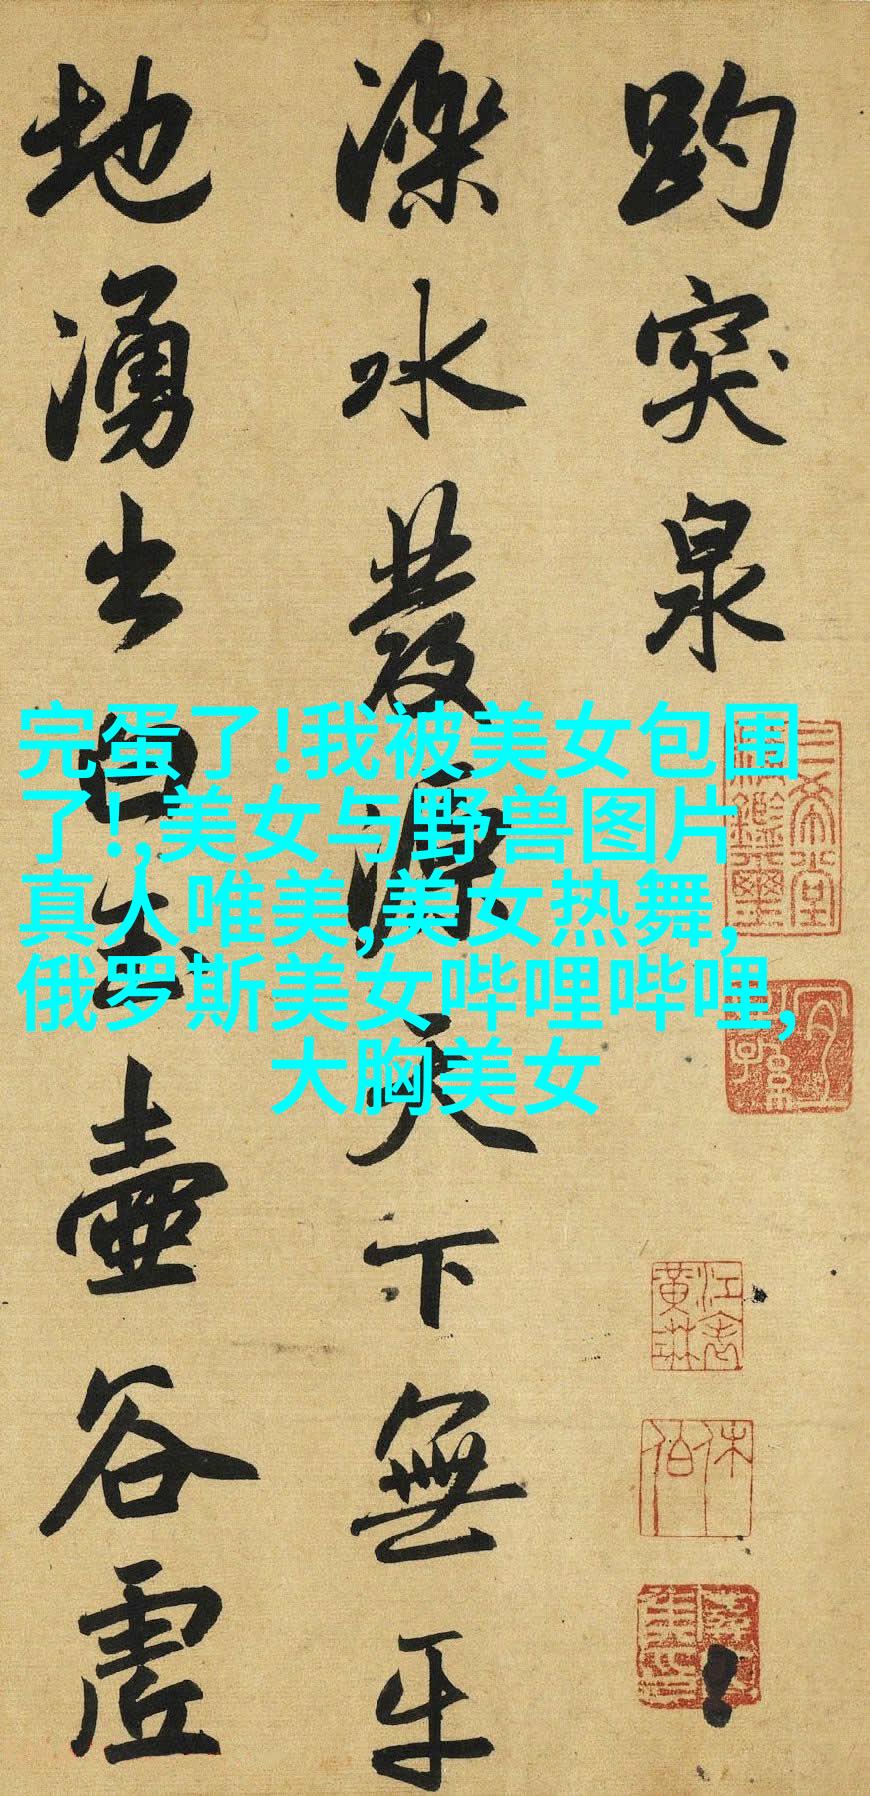 趵突泉
濼水發源天下無
平地湧出白玉壺
谷虛
完蛋了!我被美女包围
了!,美女与野兽图片
真人唯美,美女热舞,
俄罗斯美女哔哩哔哩,
大胸美女